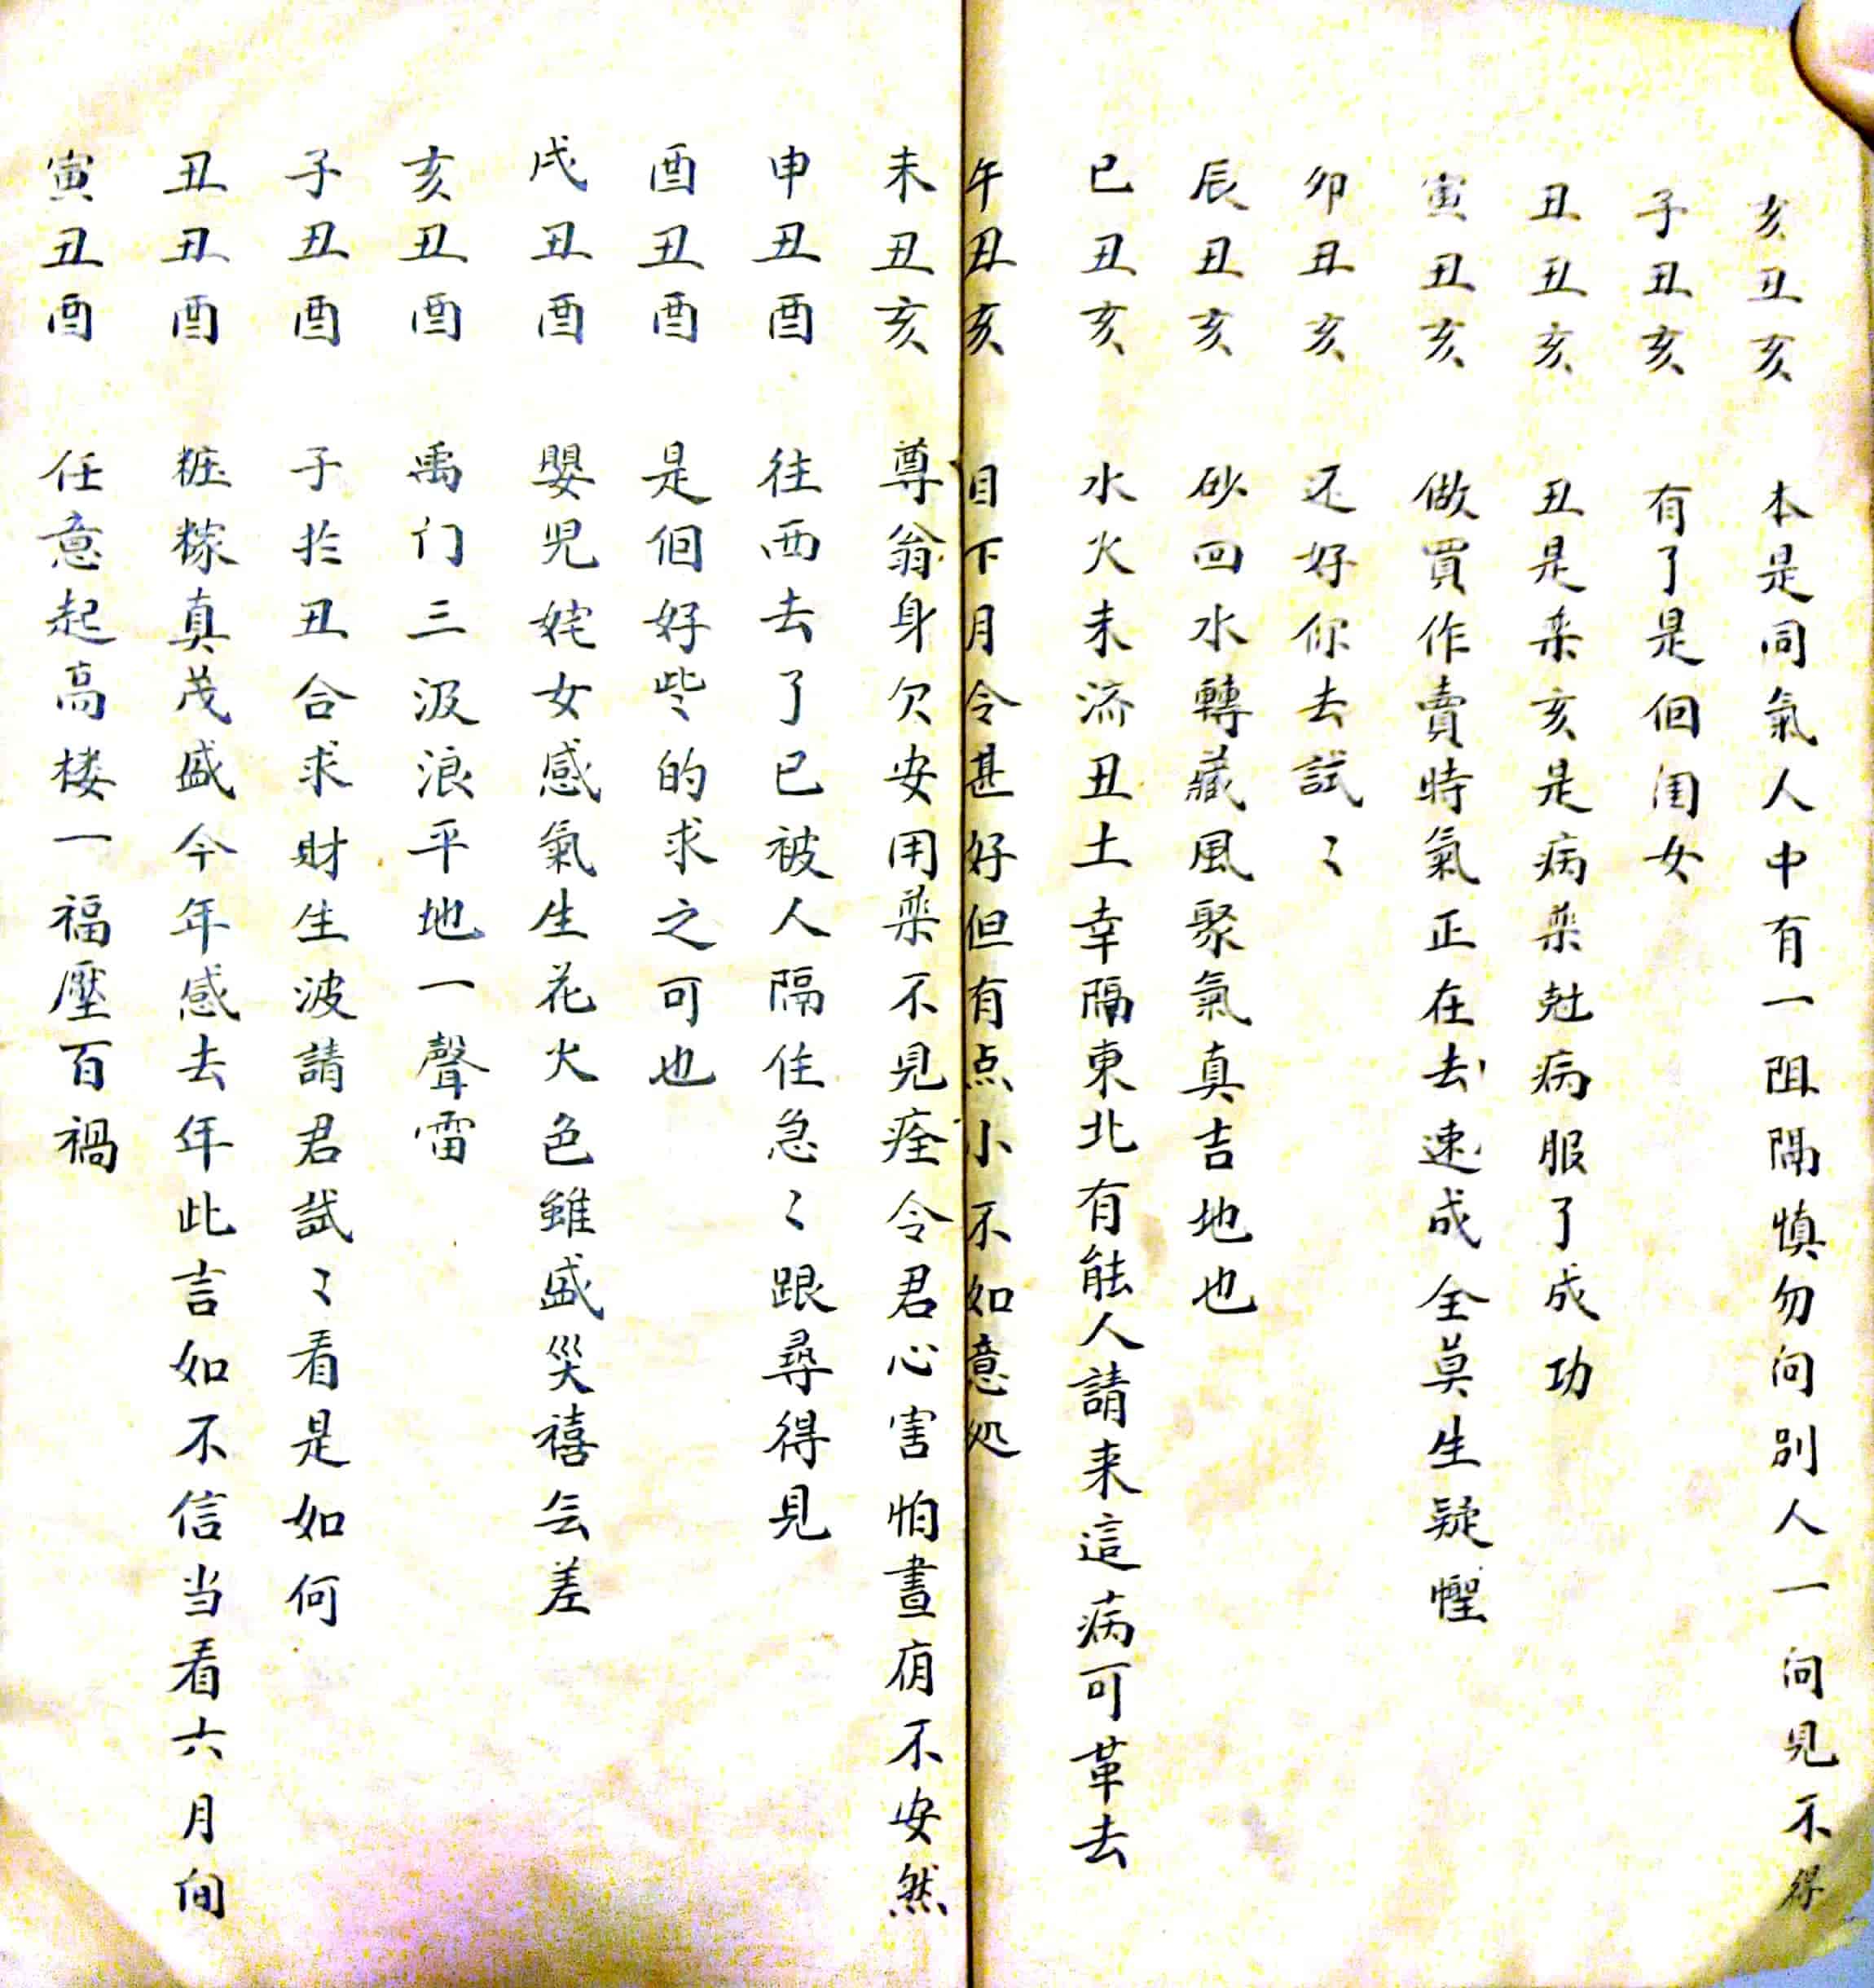 亥丑亥 本是同氣人中有一阻隔慎勿问别人一问見不得
子丑亥 有了是個闺女
丑丑亥 丑是薬亥是病薬尅病服了成功
寅丑亥 做買作賣時氣正在去速成全莫生疑惺
卯丑亥 还好你去試〻
辰丑亥 砂回水轉藏風聚氣真吉地也
巳丑亥 水火未济丑土幸隔東北有能人請来這病可革去
午丑亥 目下月令甚好但有点小不如意処
未丑亥 尊翁身欠安用薬不見痊令君心害怕晝夜不安然
申丑酉 往西去了已被人隔住急〻跟尋得見
酉丑酉 是個好些的求之可也
戌丑酉 嬰児姹女感氣生花火色雖盛災禧无差
亥丑酉 禹门三汲浪平地一聲雷
子丑酉 子扵丑合求財生波請君試〻看是如何
丑丑酉 粧稼真茂盛今年感去年此言如不信当看六月间
寅丑酉 任意起高楼一福壓百禍